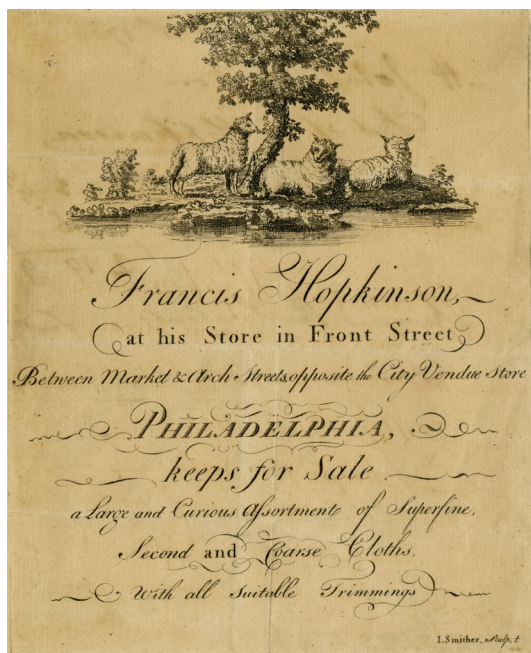 Francis Hopkinson,
at his Store in Front Street
Between Market & Arch Streets, opposite the City Vendue Store
PHILADELPHIA,
keeps for Sale
a Large and Curious Assortment of Superfine,
Second and Coarse Cloths,
With all suitable Trimmings
I. Smither, Sculp.t